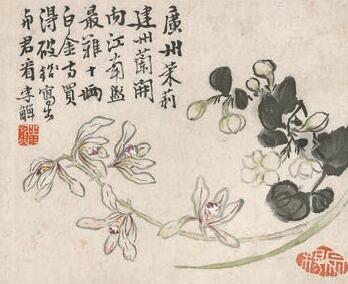 廣州茉莉
建州蘭開
向江南盛
最難十兩
白金方買
得破鉛寫出
与君看李鱓